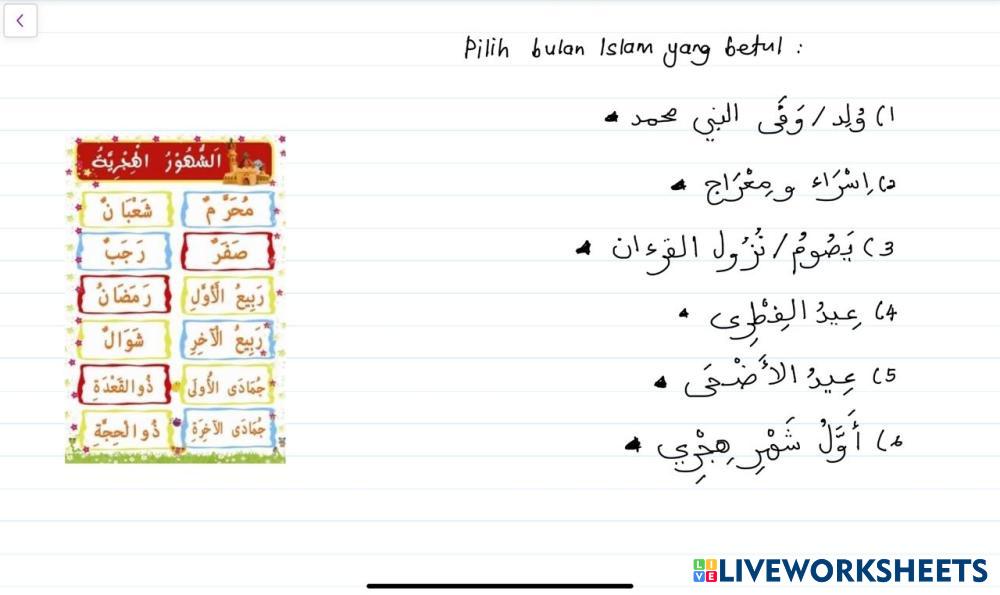 Pilih bulan Islam yang betul :
1) وُلِد / وَفَى النبي محمد
2) اِسْرَاء و مِعْرَاج
3) يَصُومُ / نُزُول القرءان
4) عِيدُ الفِطْرِى
5) عِيدُ الأَضْحَى
6) أَوَّلُ شَهْرِ هِجْرِي
اَلشُّهُوْرُ الْهِجْرِيَّةُ
مُحَرَّمٌ شَعْبَانٌ
صَفَرٌ رَجَبٌ
رَبِيعُ الْأَوَّلِ رَمَضَانُ
رَبِيعُ الْآخِرِ شَوَالٌ
جُمَادَى الأُولَى ذُوالقَعْدَةِ
جُمَادَى الآخِرَة ذُوالْحِجَّةِ
LIVEWORKSHEETS